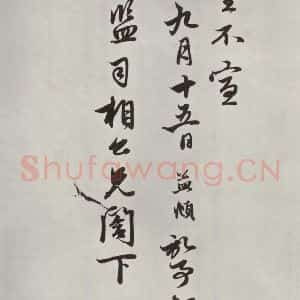 不宣
九月十五日 益頓
監司相公兄閣下
Shufawang.CN